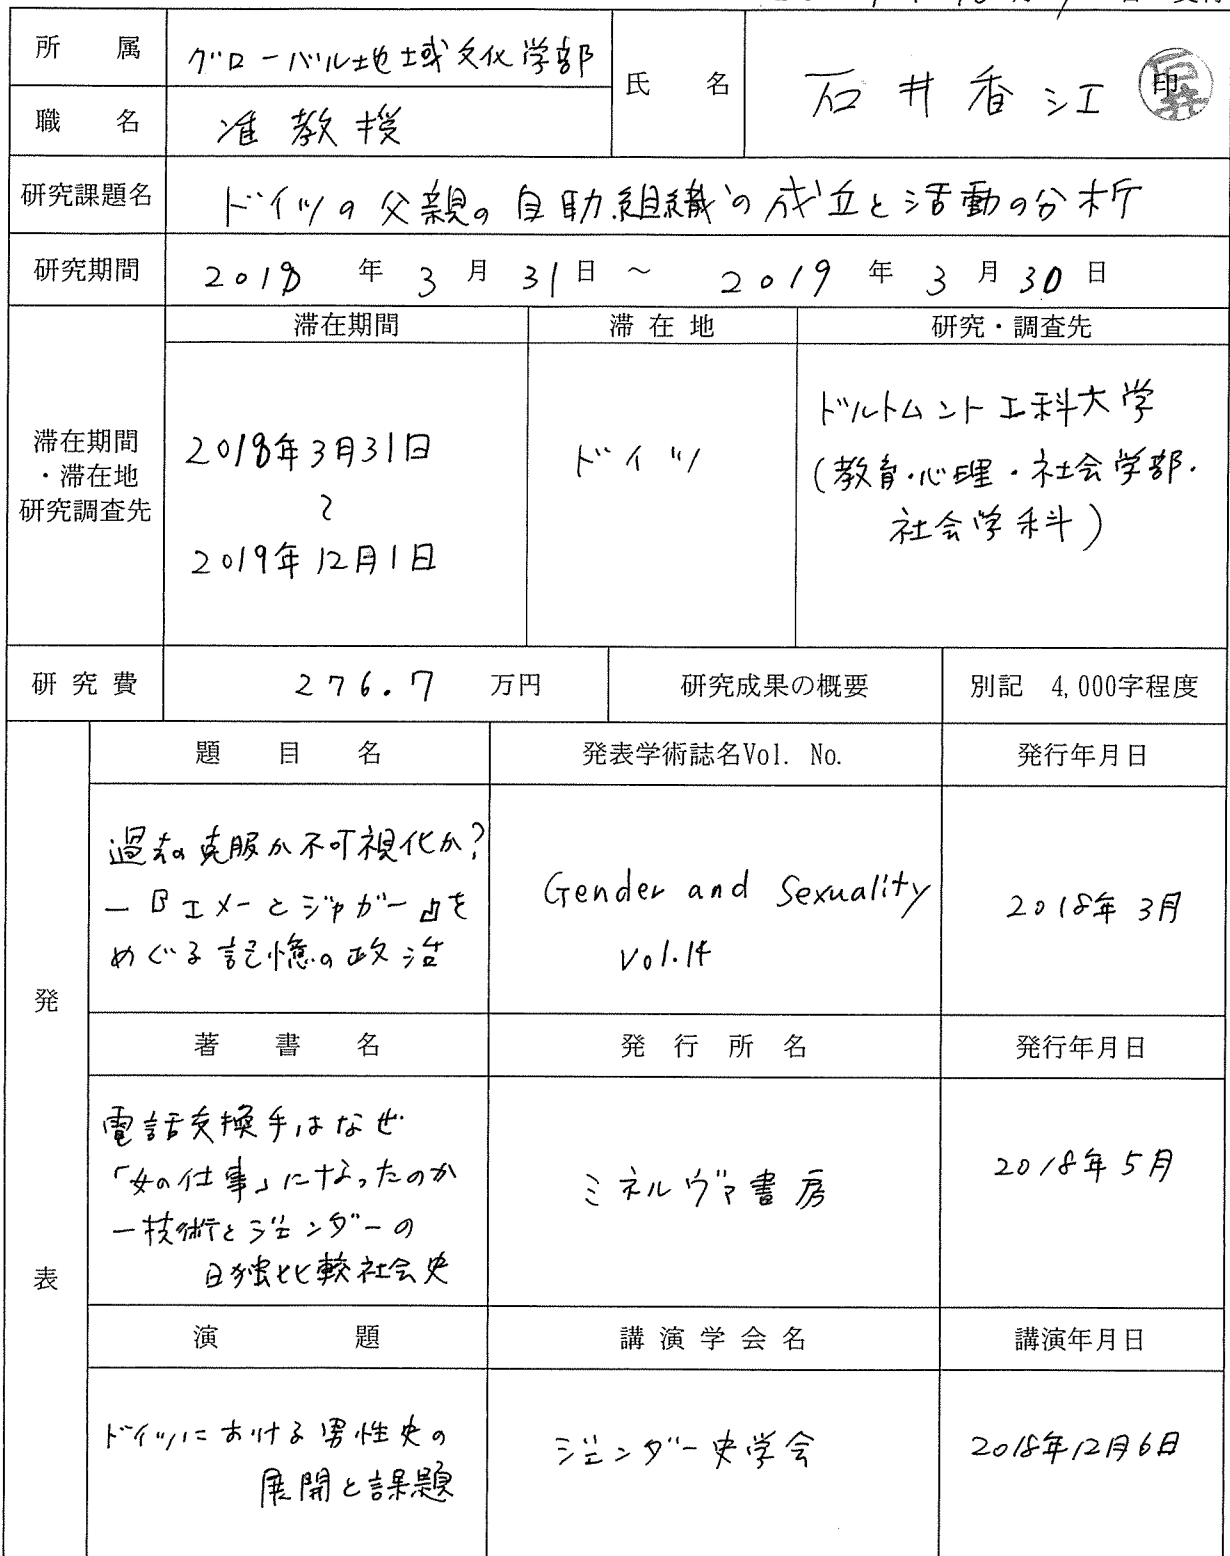 所 属 グローバル地域文化学部 氏 名 石井香江 印
職 名 准教授
研究課題名 ドイツの父親の自助組織の成立と活動の分析
研究期間 2018 年 3 月 31 日 ~ 2019 年 3 月 30 日
滞在期間 滞在地 研究・調査先
滞在期間
・滞在地
研究調査先
2018年3月31日
~
2019年12月1日
ドイツ
ドルトムント工科大学
(教育・心理・社会学部・
社会学科)
研究費 276.7 万円 研究成果の概要 別記 4,000字程度
発表
題目名 発表学術誌名Vol. No. 発行年月日
過去の克服か不可視化か?
ーBエメーとジャガー凸を
めぐる記憶の政治
Gender and Sexuality
vol.14
2018年3月
著書名 発行所名 発行年月日
電話交換手はなぜ
「女の仕事」になったのか
ー技術とジェンダーの
日独比較社会史
ミネルヴァ書房
2018年5月
演題 講演学会名 講演年月日
ドイツにおける男性史の
展開と課題
ジェンダー史学会
2018年12月6日